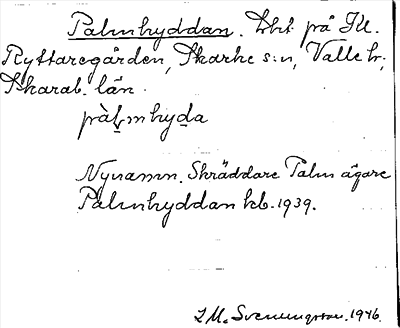 Palmhyddan. Lht på St.
Ryttaregården, Skarke s:n, Valle hr,
Skarab. län.
pàḷmhyd̲a
Nynamn. Skräddare Palm ägare
Palmhyddan kb. 1939.
I. M. Svenungsson. 1946.